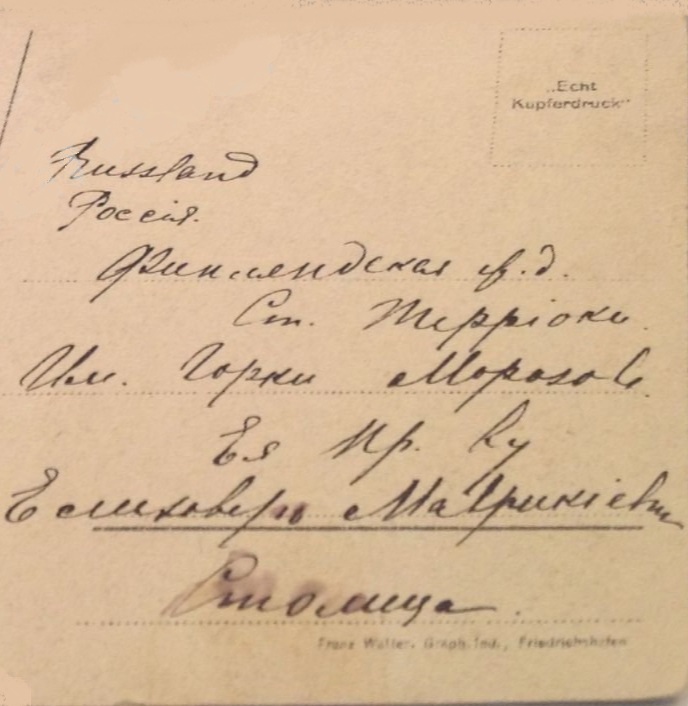 „Echt
Kupferdruck"
Russland
Россія.
Финляндская ж.д.
Ст. Терріоки.
Им. Горки Морозов.
Ея Пр.
Матрикіевн
Столица.
Franz Walter, Graph. Ind., Friedrichshafen